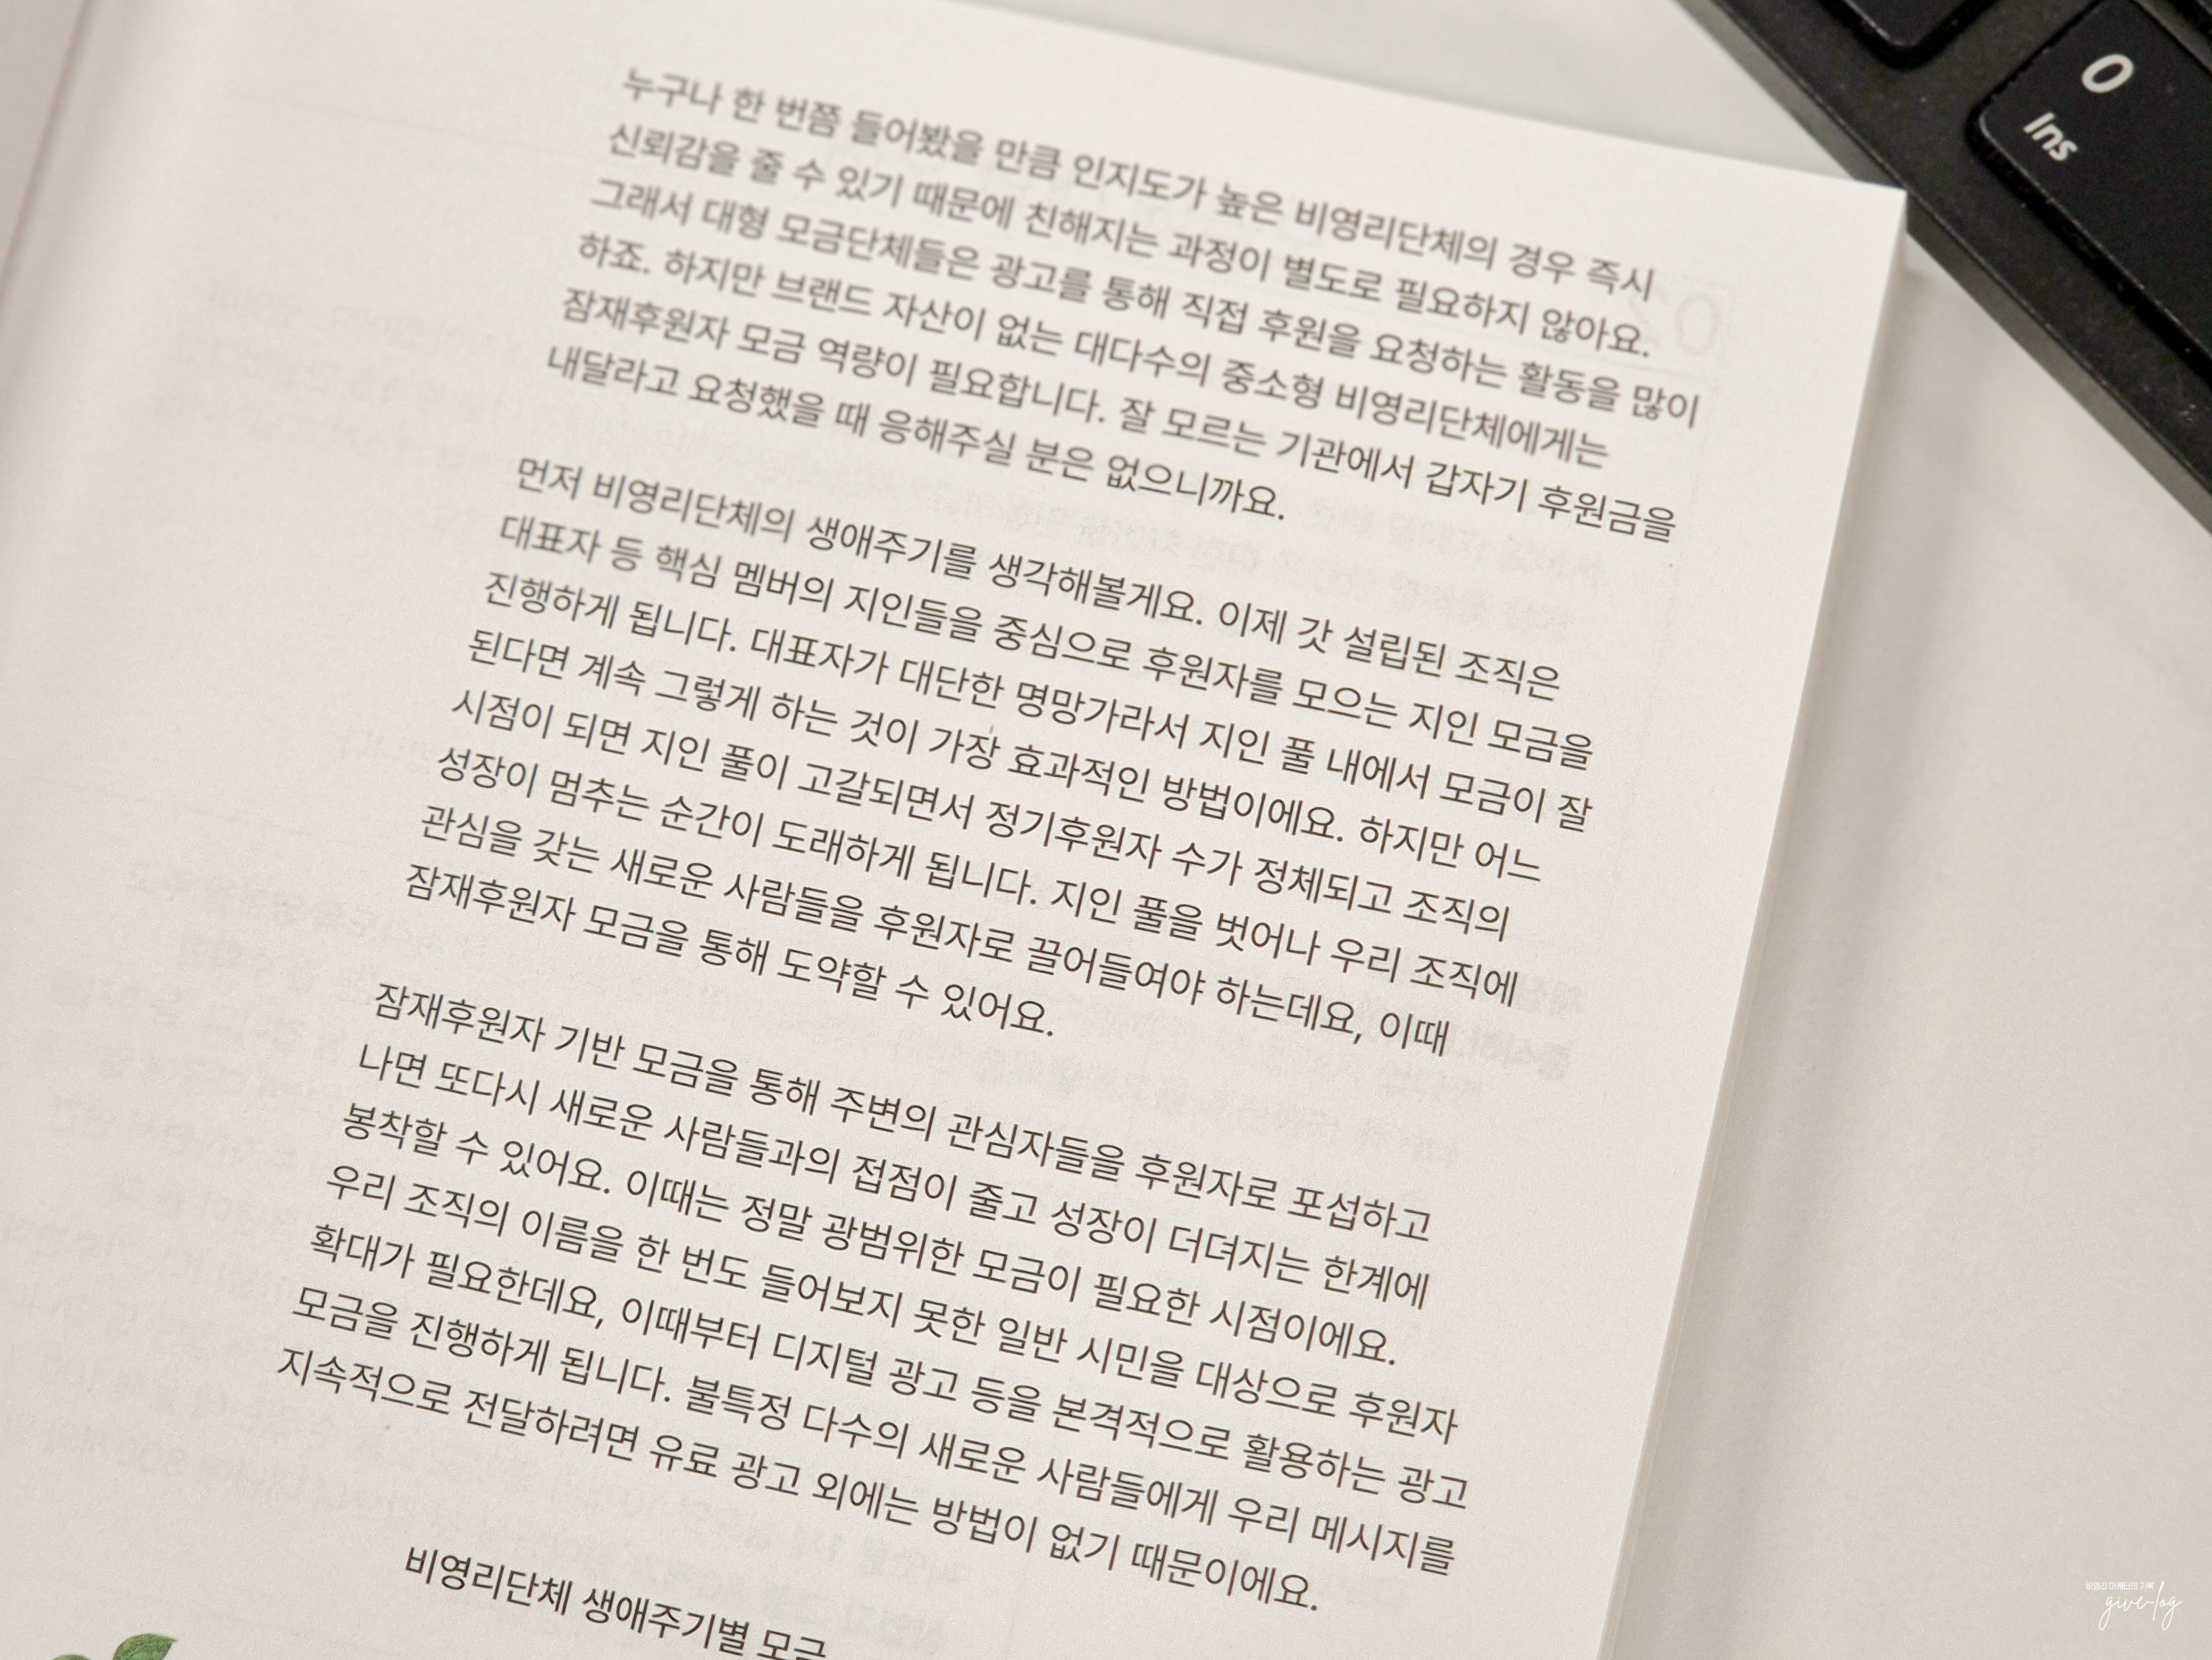 누구나 한 번쯤 들어봤을 만큼 인지도가 높은 비영리단체의 경우 즉시
신뢰감을 줄 수 있기 때문에 친해지는 과정이 별도로 필요하지 않아요.
그래서 대형 모금단체들은 광고를 통해 직접 후원을 요청하는 활동을 많이
하죠. 하지만 브랜드 자산이 없는 대다수의 중소형 비영리단체에게는
잠재후원자 모금 역량이 필요합니다. 잘 모르는 기관에서 갑자기 후원금을
내달라고 요청했을 때 응해주실 분은 없으니까요.
먼저 비영리단체의 생애주기를 생각해볼게요. 이제 갓 설립된 조직은
대표자 등 핵심 멤버의 지인들을 중심으로 후원자를 모으는 지인 모금을
진행하게 됩니다. 대표자가 대단한 명망가라서 지인 풀 내에서 모금이 잘
된다면 계속 그렇게 하는 것이 가장 효과적인 방법이에요. 하지만 어느
시점이 되면 지인 풀이 고갈되면서 정기후원자 수가 정체되고 조직의
성장이 멈추는 순간이 도래하게 됩니다. 지인 풀을 벗어나 우리 조직에
관심을 갖는 새로운 사람들을 후원자로 끌어들여야 하는데요, 이때
잠재후원자 모금을 통해 도약할 수 있어요.
잠재후원자 기반 모금을 통해 주변의 관심자들을 후원자로 포섭하고
나면 또다시 새로운 사람들과의 접점이 줄고 성장이 더뎌지는 한계에
봉착할 수 있어요. 이때는 정말 광범위한 모금이 필요한 시점이에요.
우리 조직의 이름을 한 번도 들어보지 못한 일반 시민을 대상으로 후원자
확대가 필요한데요, 이때부터 디지털 광고 등을 본격적으로 활용하는 광고
모금을 진행하게 됩니다. 불특정 다수의 새로운 사람들에게 우리 메시지를
지속적으로 전달하려면 유료 광고 외에는 방법이 없기 때문이에요.
비영리단체 생애주기별 모금
0
Ins
비영리 마케터의 기록
give-log